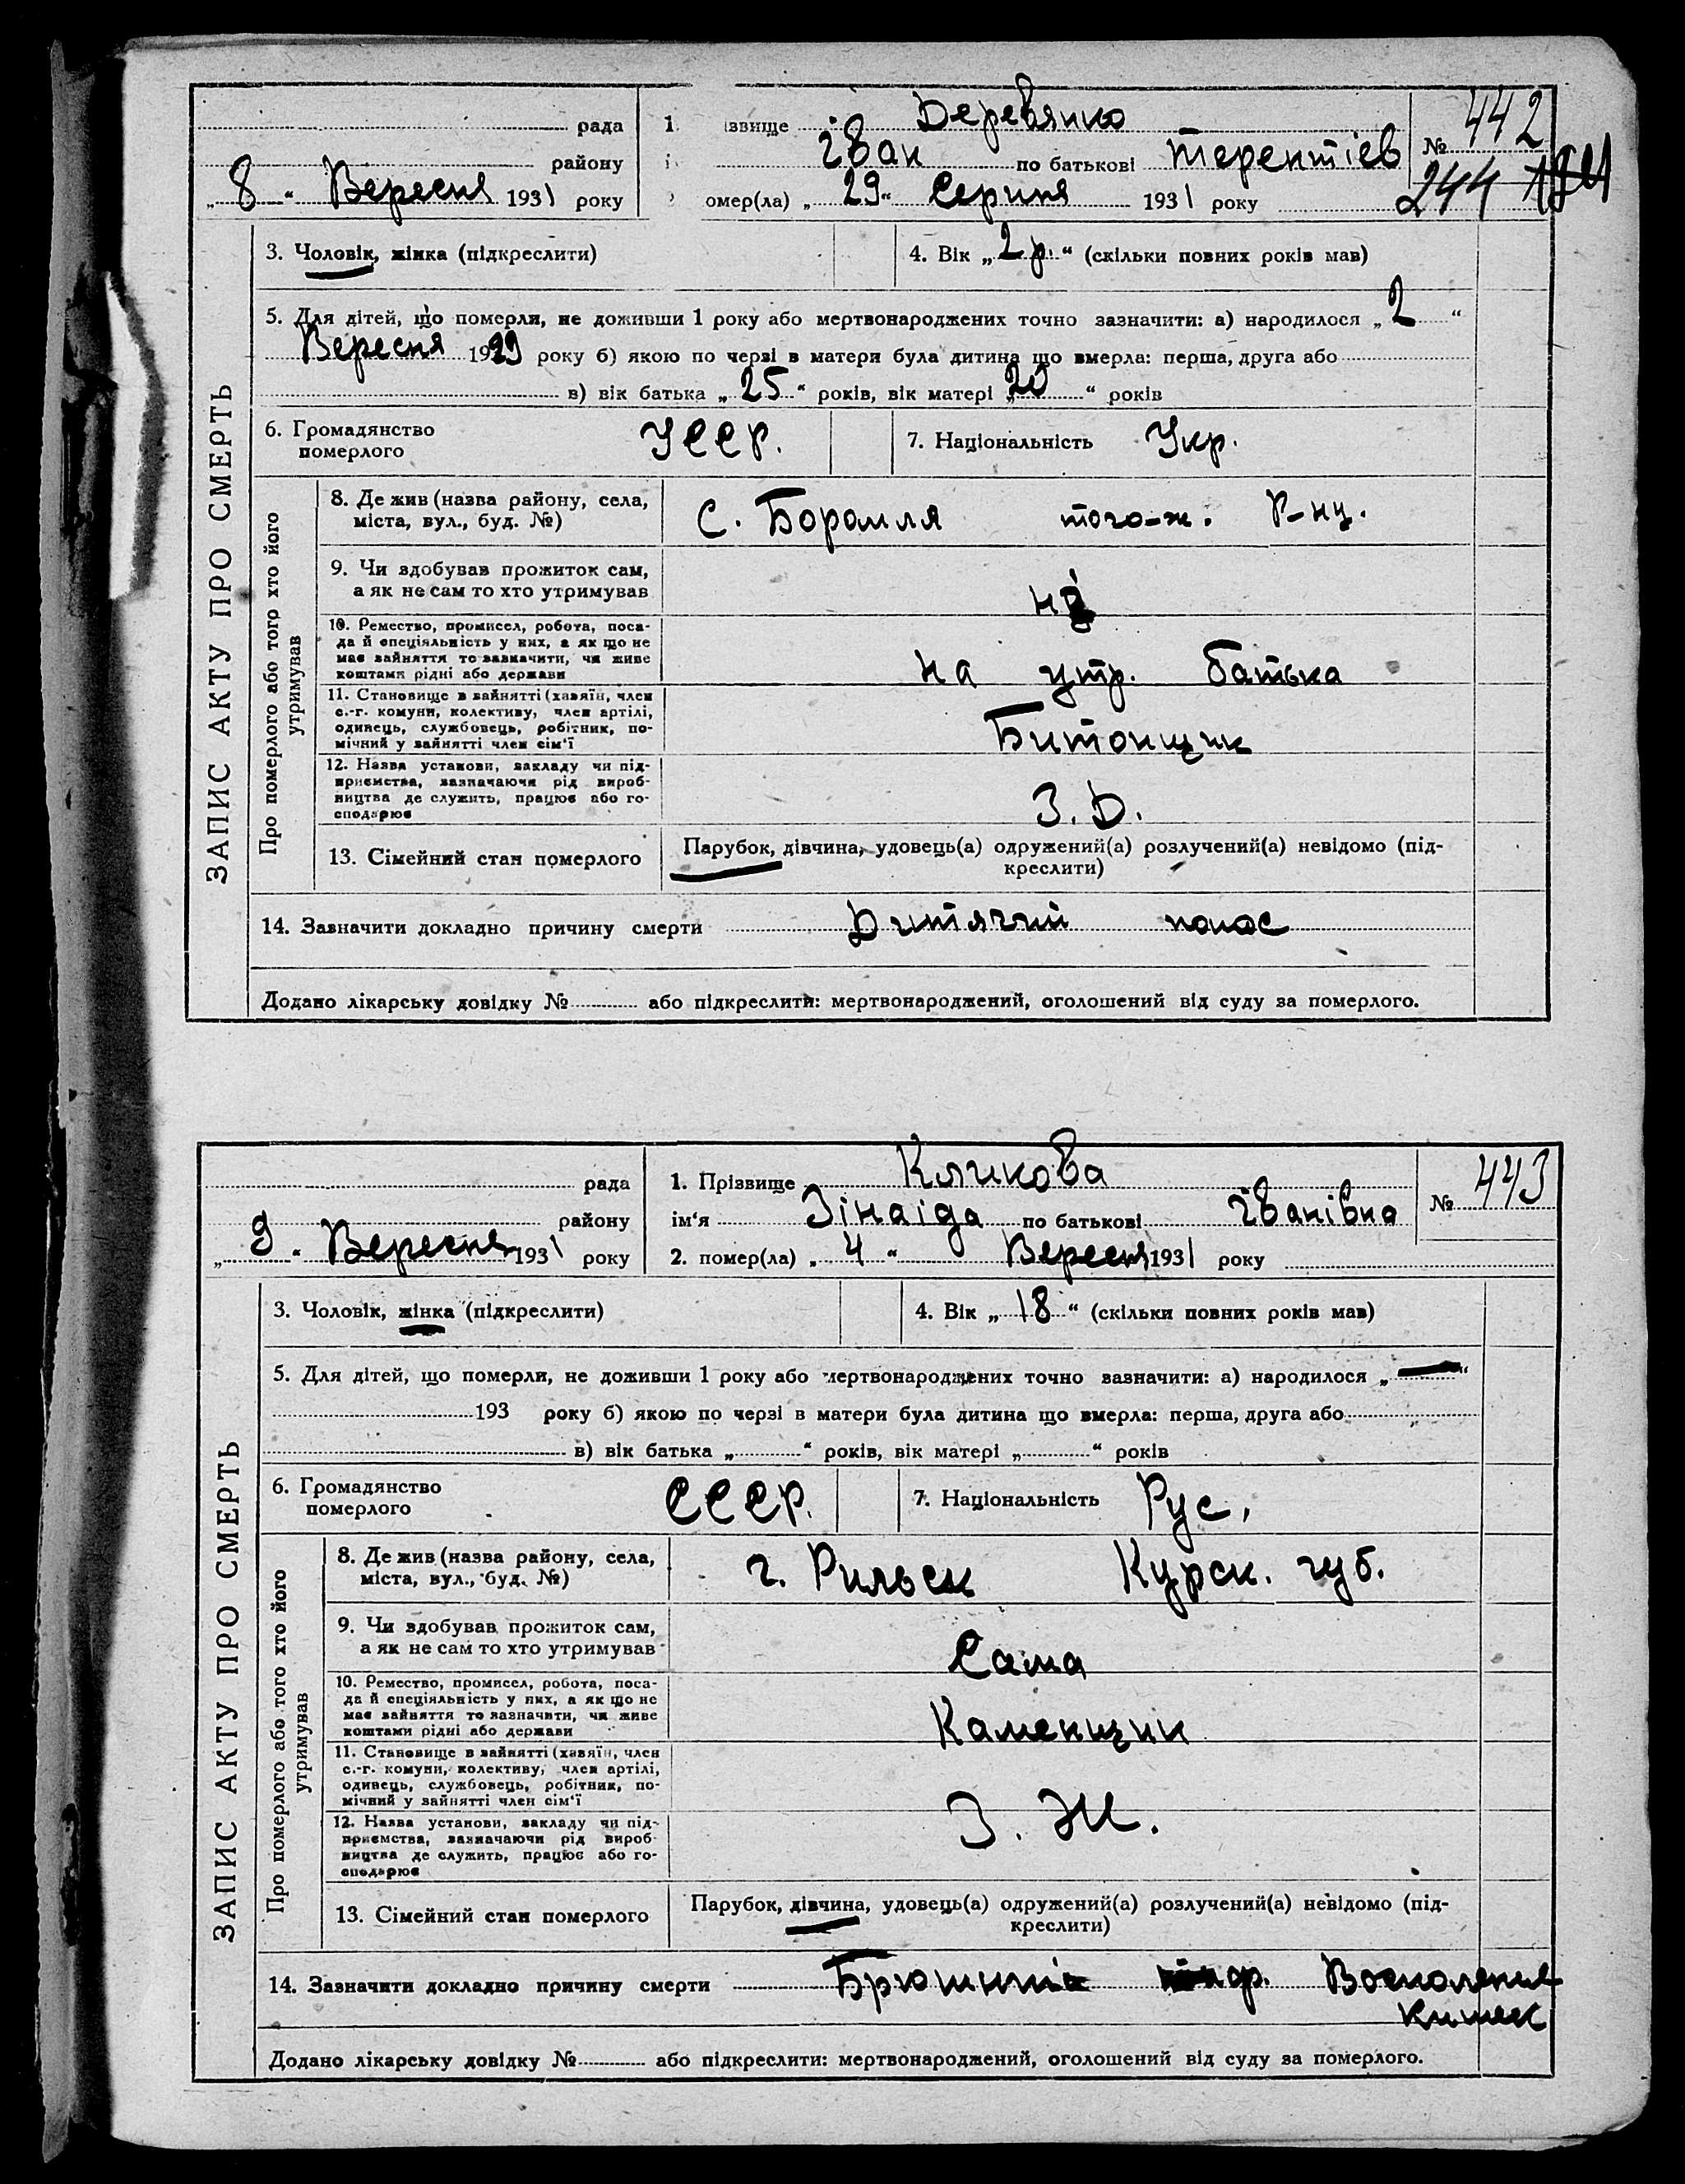 ЗАПИС АКТУ ПРО СМЕРТЬ
рада
району
„8“ Вересня 1931 року
1. ізвище Деревянко
Іван по батькові Терентіев
омер(ла) „29“ Серпня 1931 року
№ 442
244
3. Чоловік, жінка (підкреслити)
4. Вік „2 р.“ (скільки повних років мав)
5. Для дітей, що померли, не доживши 1 року або мертвонароджених точно зазначити: а) народилося „2“
Вересня 1929 року б) якою по черзі в матери була дитина що вмерла: перша, друга або
в) вік батька „25“ років, вік матері „20“ років
6. Громадянство
померлого
УССР.
7. Національність Укр.
Про померлого або того хто його
утримував
8. Де жив (назва району, села,
міста, вул., буд. №)
С. Боромля того-ж. Р-ну.
9. Чи здобував прожиток сам,
а як не сам то хто утримував
10. Ремество, промисел, робота, поса-
да й спеціяльність у них, а як що не
має зайняття то зазначити, чи живе
коштами рідні або держави
на утр. батька
11. Становище в зайнятті (хазяїн, член
с.-г. комуни, колективу, член артілі,
одинець, службовець, робітник, по-
мічний у зайнятті член сім‘ї
Битонщик
12. Назва установи, закладу чи під-
приємства, зазначаючи рід вироб-
ництва де служить, працює або го-
сподарює
З. Д.
13. Сімейний стан померлого
Парубок, дівчина, удовець(а) одружений(а) розлучений(а) невідомо (під-
креслити)
14. Зазначити докладно причину смерти Дитячий понос
Додано лікарську довідку № або підкреслити: мертвонароджений, оголошений від суду за померлого.
ЗАПИС АКТУ ПРО СМЕРТЬ
рада
району
„9“ Вересня 1931 року
1. Прізвище Кликова
ім‘я Зінаіда по батькові Іванівна
2. помер(ла) „4“ Вересня 1931 року
№ 443
3. Чоловік, жінка (підкреслити)
4. Вік „18“ (скільки повних років мав)
5. Для дітей, що померли, не доживши 1 року або мертвонароджених точно зазначити: а) народилося „—“
193 року б) якою по черзі в матери була дитина що вмерла: перша, друга або
в) вік батька „ “ років, вік матері „ “ років
6. Громадянство
померлого
СССР.
7. Національність Рус.
Про померлого або того хто його
утримував
8. Де жив (назва району, села,
міста, вул., буд. №)
г. Рильск Курск. губ.
9. Чи здобував прожиток сам,
а як не сам то хто утримував
Сама
10. Ремество, промисел, робота, поса-
да й спеціяльність у них, а як що не
має зайняття то зазначити, чи живе
коштами рідні або держави
Каменщик
11. Становище в зайнятті (хазяїн, член
с.-г. комуни, колективу, член артілі,
одинець, службовець, робітник, по-
мічний у зайнятті член сім‘ї
З. Ж.
12. Назва установи, закладу чи під-
приємства, зазначаючи рід вироб-
ництва де служить, працює або го-
сподарює
13. Сімейний стан померлого
Парубок, дівчина, удовець(а) одружений(а) розлучений(а) невідомо (під-
креслити)
14. Зазначити докладно причину смерти
Додано лікарську довідку № або підкреслити: мертвонароджений, оголошений від суду за померлого.